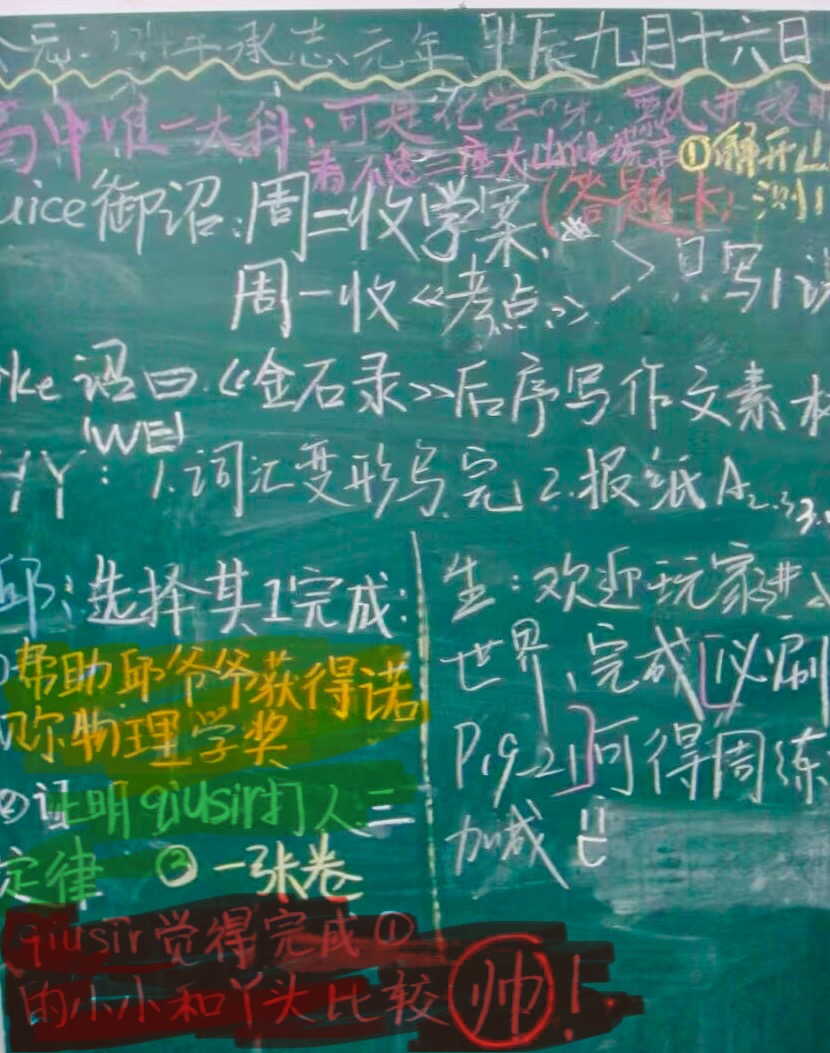 元: 平承志元年 甲辰九月十六日
高中唯一大科: 可是化学
看不 三座大山 ①解开
uice御诏: 周二收学案 (答题卡) 测
周一收《考点》 > 只写1
ke 语曰.《金石录》后序写作文素材
WEI
HY: 1.词汇变形写完 2.报纸A2.3 3.
邱: 选择其1完成:
帮助邱爷爷获得诺
贝尔物理学奖
②证明qiusir打人二
定律 ③一张卷
qiusir觉得完成①
的小小和丫头比较帅!
生: 欢迎玩家进入
世界、完成[必刷
P19-21]可得周练
加减